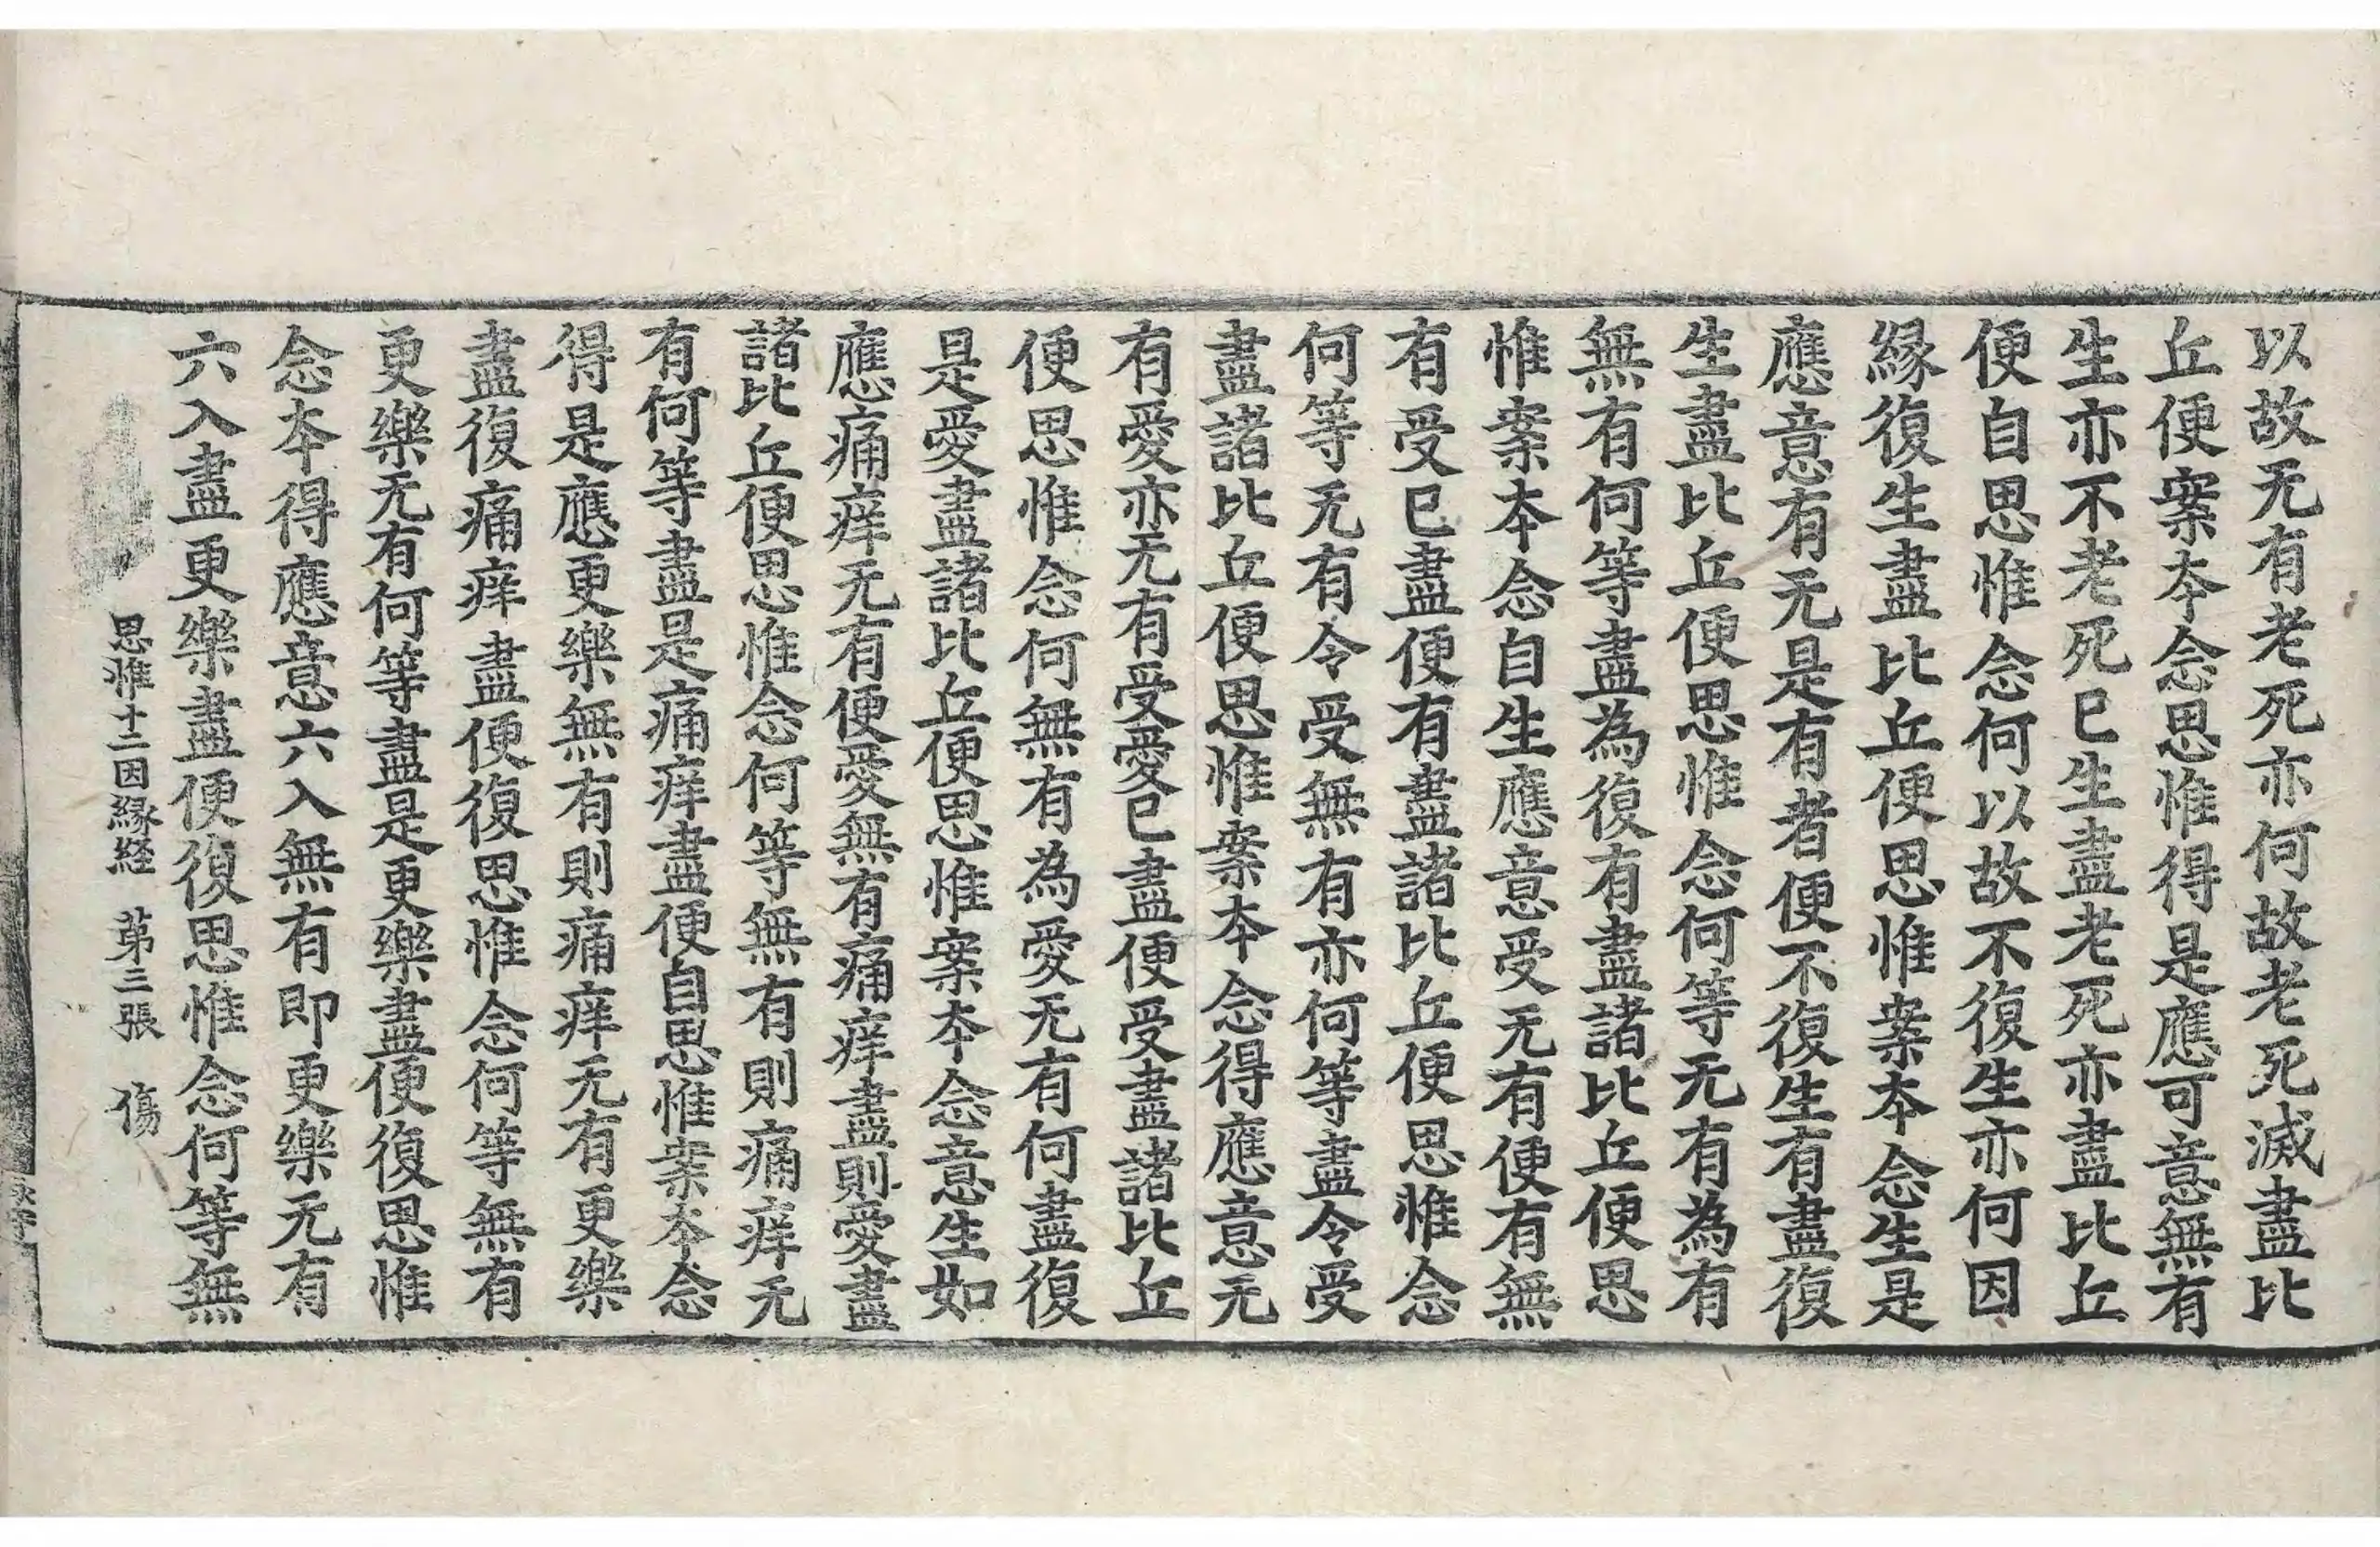 以故无有老死亦何故老死滅盡比
丘便案本念思惟得是應可意無有
生亦不老死已生盡老死亦盡比丘
便自思惟念何以故不復生亦何因
縁復生盡比丘便思惟案本念生是
應意有无是有者便不復生有盡復
生盡比丘便思惟念何等无有為有
無有何等盡為復有盡諸比丘便思
惟案本念自生應意受无有便有無
有受已盡便有盡諸比丘便思惟念
何等无有令受無有亦何等盡令受
盡諸比丘便思惟案本念得應意无
有愛亦无有受愛已盡便受盡諸比丘
便思惟念何無有為愛无有何盡復
是愛盡諸比丘便思惟案本念意生如
應痛痒无有便愛無有痛痒盡則愛盡
諸比丘便思惟念何等無有則痛痒无
有何等盡是痛痒盡便自思惟案本念
得是應更樂無有則痛痒无有更樂
盡復痛痒盡便復思惟念何等無有
更樂无有何等盡是更樂盡便復思惟
念本得應意六入無有即更樂无有
六入盡更樂盡便復思惟念何等無
思惟十二因縁経 第三張 傷